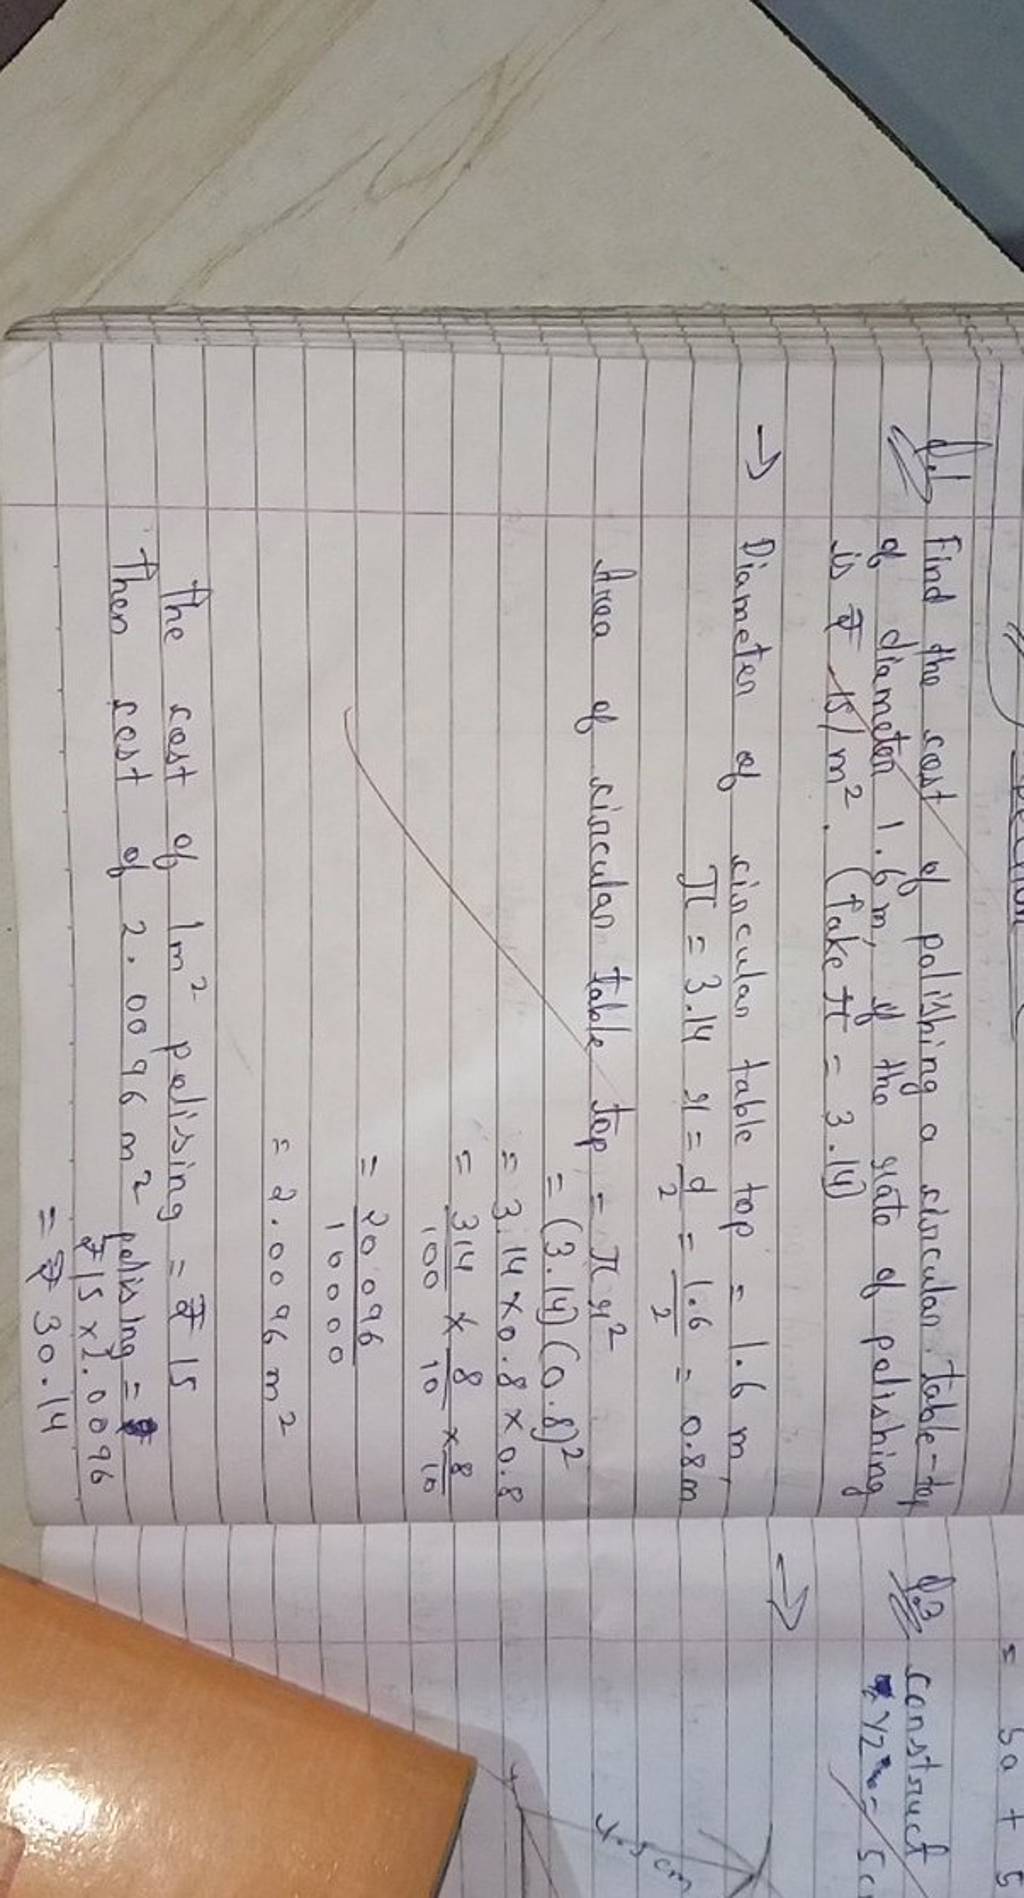 Q.1 Find the cost of polishing a circular table-top
of diameter 1.6 m, if the rate of polishing
is ₹ 15/m². (Take π = 3.14)
→ Diameter of circular table top = 1.6 m,
π = 3.14 r = d/2 = 1.6/2 = 0.8m
Area of circular table top = πr²
= (3.14) (0.8)²
= 3.14 × 0.8 × 0.8
= 314/100 × 8/10 × 8/10
= 20096/10000
= 2.0096 m²
The cost of 1m² polising = ₹ 15
Then cost of 2.0096 m² polising =
₹ 15 × 2.0096
= ₹ 30.14
= 5a + 5
Q.3 construct
YZ = 5c
→
4.5 cm